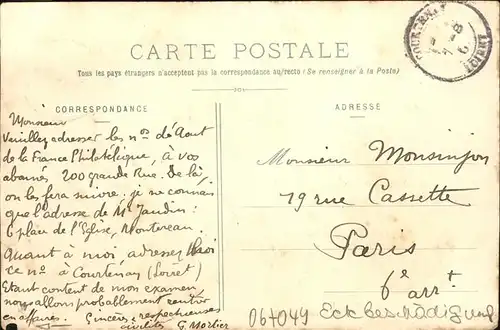 CARTE POSTALE
Tous les pays étrangers n'acceptent pas la correspondance au recto (Se renseigner à la Poste)
CORRESPONDANCE
Monsieur
Veuillez adresser les nos d'Aout
de la France Philatélique, à vos
abonnés 200 grande Rue. De là,
on les fera suivre. je ne connais
que l'adresse de Mr Jandin:
6 place de l'Eglise, Montereau.
Quant à moi, adressez moi
ce no à Courtenay (Loiret)
Etant content de mon examen,
nous allons probablement rentrer
en affaires. Sincères respectueuses
civilités G. Mortier
ADRESSE
Monsieur Monsinjon
79 rue Cassette
Paris
6e arrt
COURTENAY
LOIRET
064049 Eck beschädigt